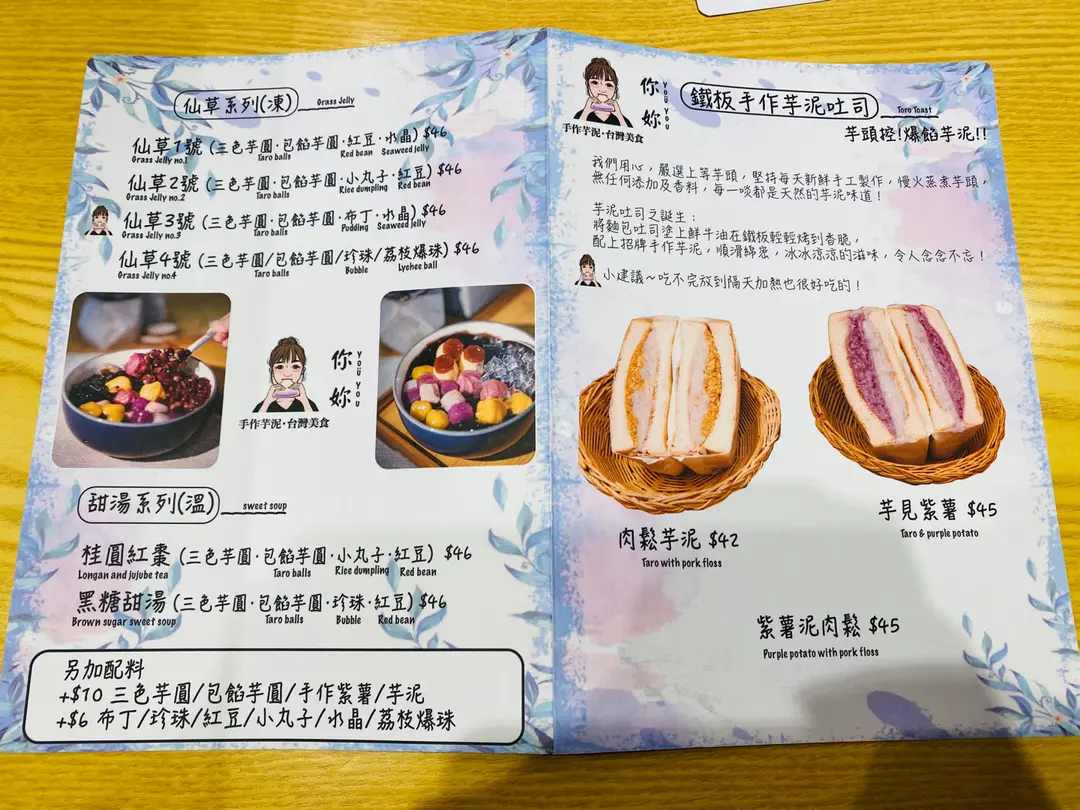 仙草系列(凍)
Grass Jelly
仙草1號 (三色芋圓·包餡芋圓·紅豆·水晶) $46
Grass Jelly no.1 Taro balls Red bean Seaweed jelly
仙草2號 (三色芋圓·包餡芋圓·小丸子·紅豆) $46
Grass Jelly no.2 Taro balls Rice dumpling Red bean
仙草3號 (三色芋圓·包餡芋圓·布丁·水晶) $46
Grass Jelly no.3 Taro balls Pudding Seaweed jelly
仙草4號 (三色芋圓/包餡芋圓/珍珠/荔枝爆珠) $46
Grass Jelly no.4 Taro balls Bubble Lychee ball
你妳
YOU YOU
手作芋泥·台灣美食
甜湯系列(溫)
sweet soup
桂圓紅棗 (三色芋圓·包餡芋圓·小丸子·紅豆) $46
Longan and jujube tea Taro balls Rice dumpling Red bean
黑糖甜湯 (三色芋圓·包餡芋圓·珍珠·紅豆) $46
Brown sugar sweet soup Taro balls Bubble Red bean
另加配料
+$10 三色芋圓/包餡芋圓/手作紫薯/芋泥
+$6 布丁/珍珠/紅豆/小丸子/水晶/荔枝爆珠
你妳
YOU YOU
手作芋泥·台灣美食
鐵板手作芋泥吐司
Toro Toast
芋頭控!爆餡芋泥!!
我們用心，嚴選上等芋頭，堅持每天新鮮手工製作，慢火蒸煮芋頭，
無任何添加及香料，每一啖都是天然的芋泥味道！
芋泥吐司之誕生：
將麵包吐司塗上鮮牛油在鐵板輕輕烤到香脆，
配上招牌手作芋泥，順滑綿密，冰冰涼涼的滋味，令人念念不忘！
小建議～吃不完放到隔天加熱也很好吃的！
肉鬆芋泥 $42
Taro with pork floss
芋見紫薯 $45
Taro & purple potato
紫薯泥肉鬆 $45
Purple potato with pork floss